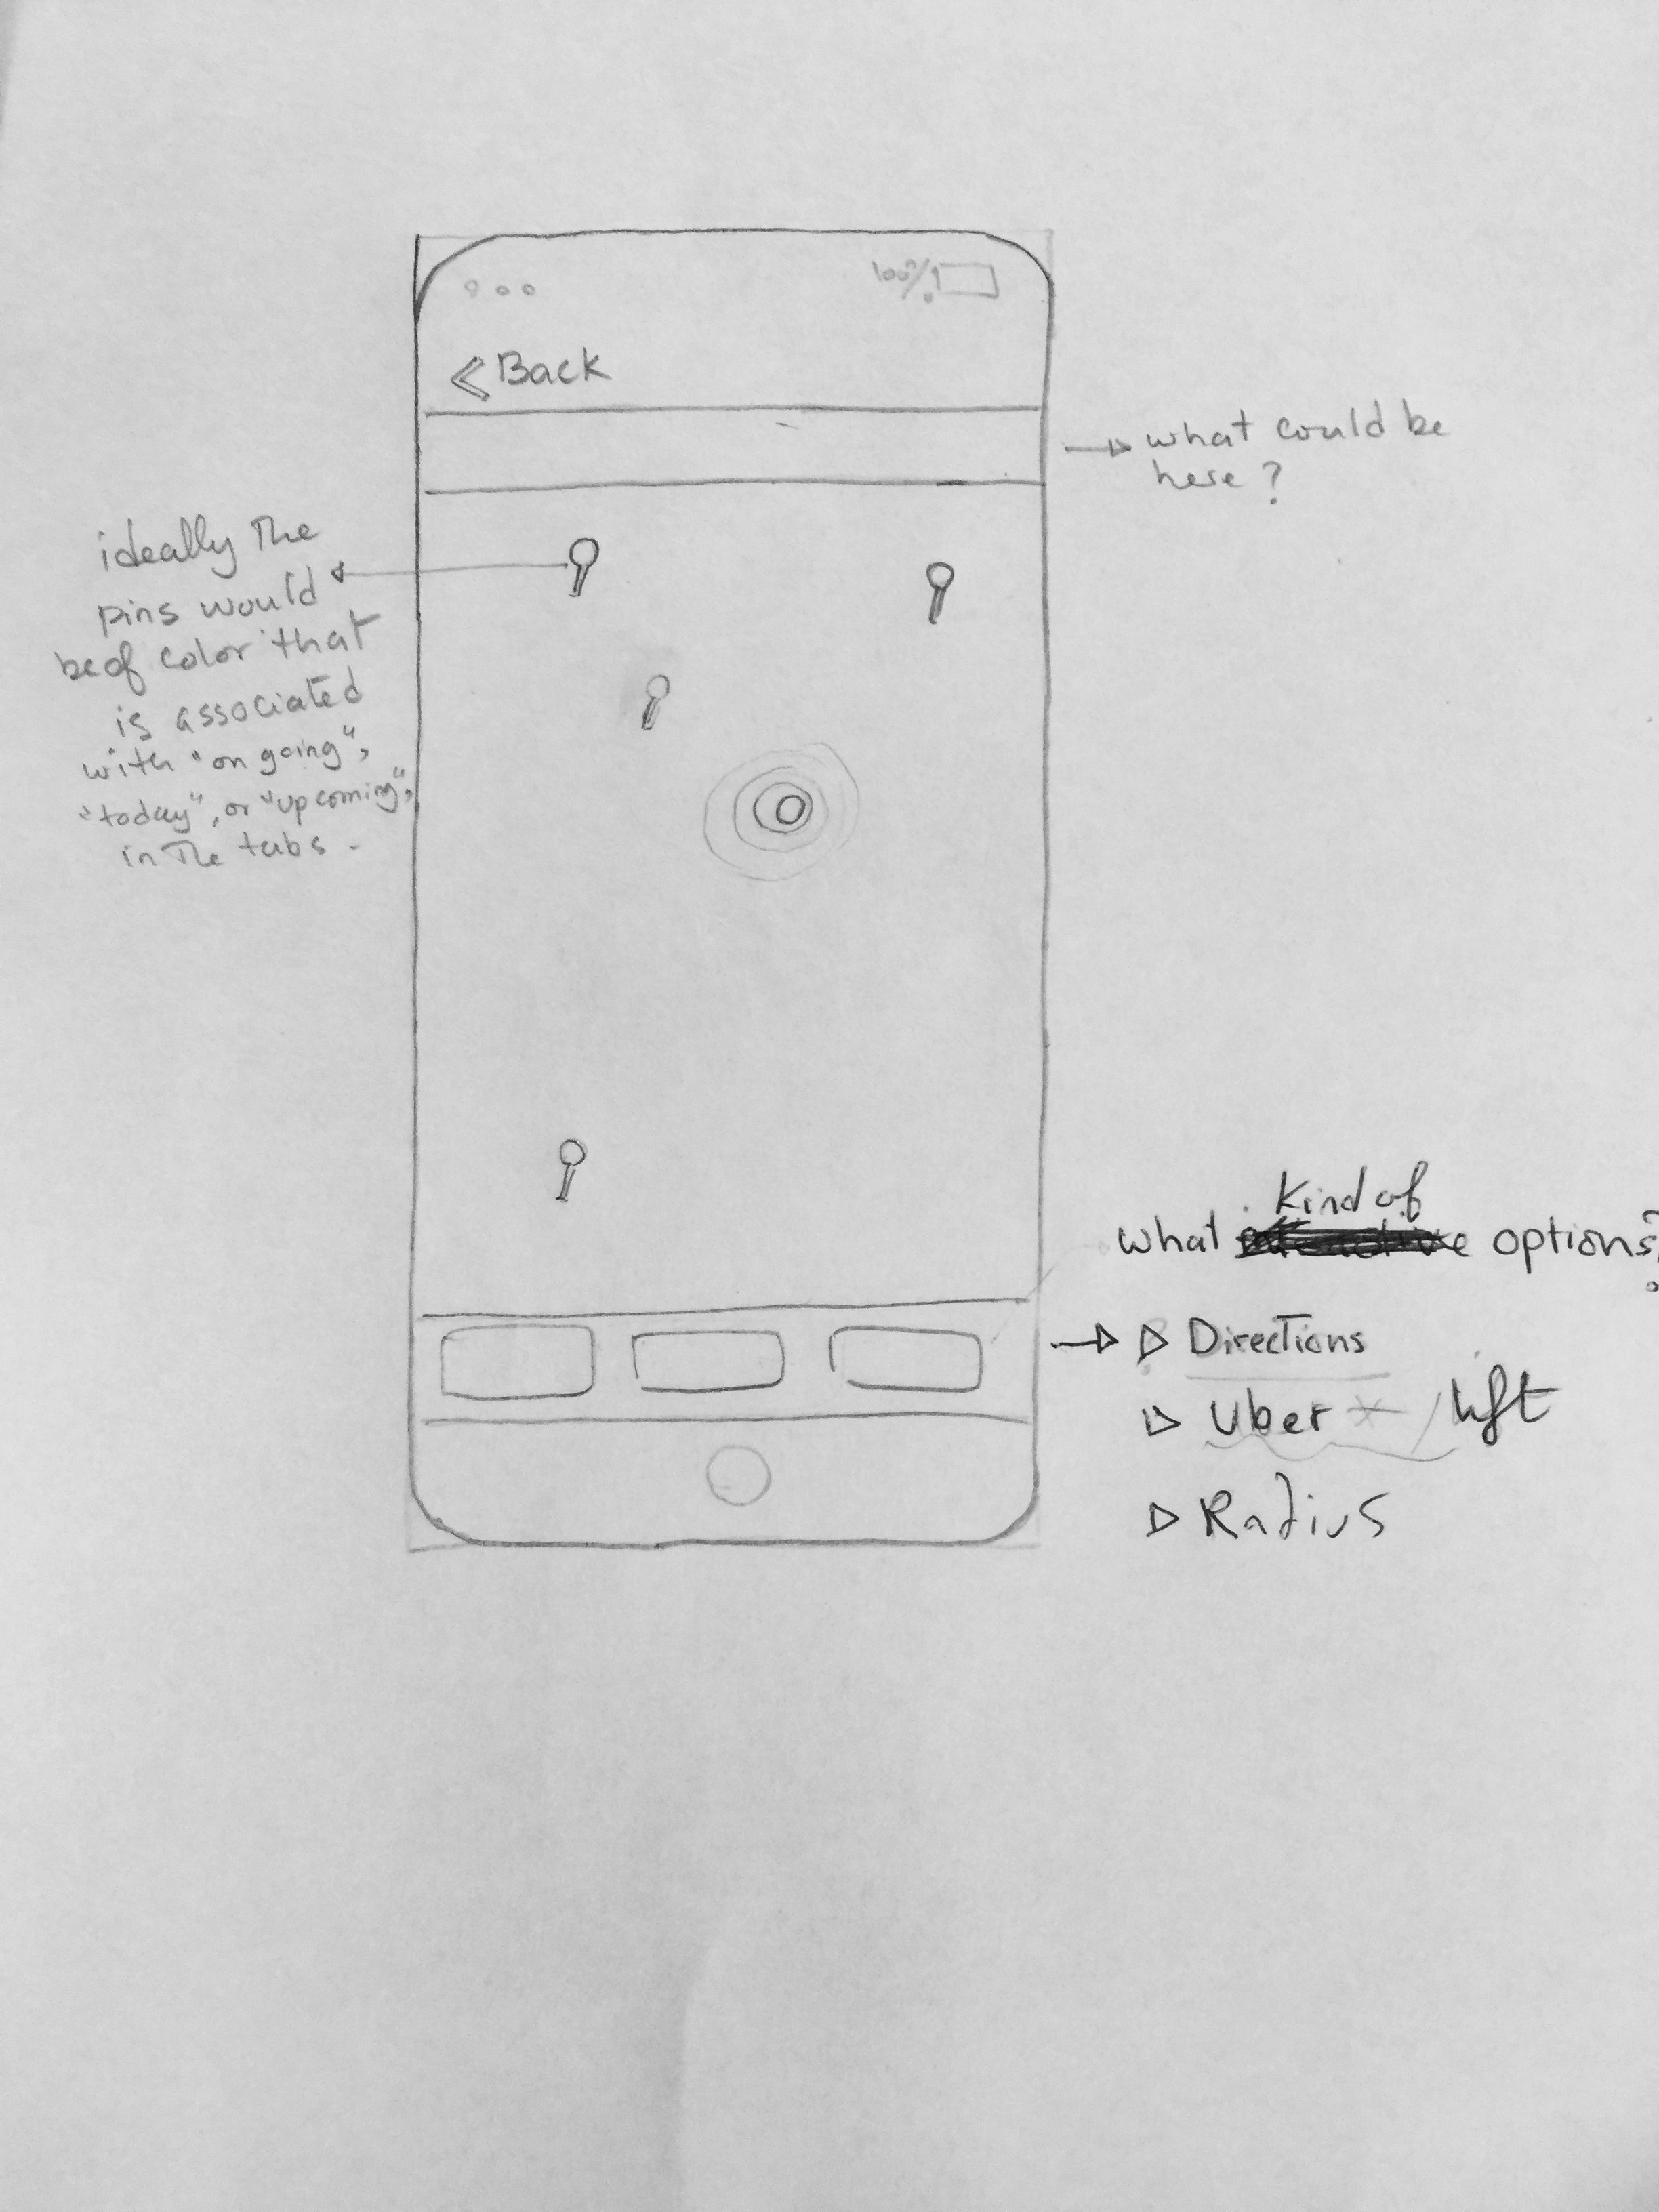 100%
< Back
what could be
here ?
ideally The
pins would
be of color that
is associated
with "on going",
"today", or "upcoming",
in The tabs.
Kind of
what options?
Directions
Uber / lift
Radius